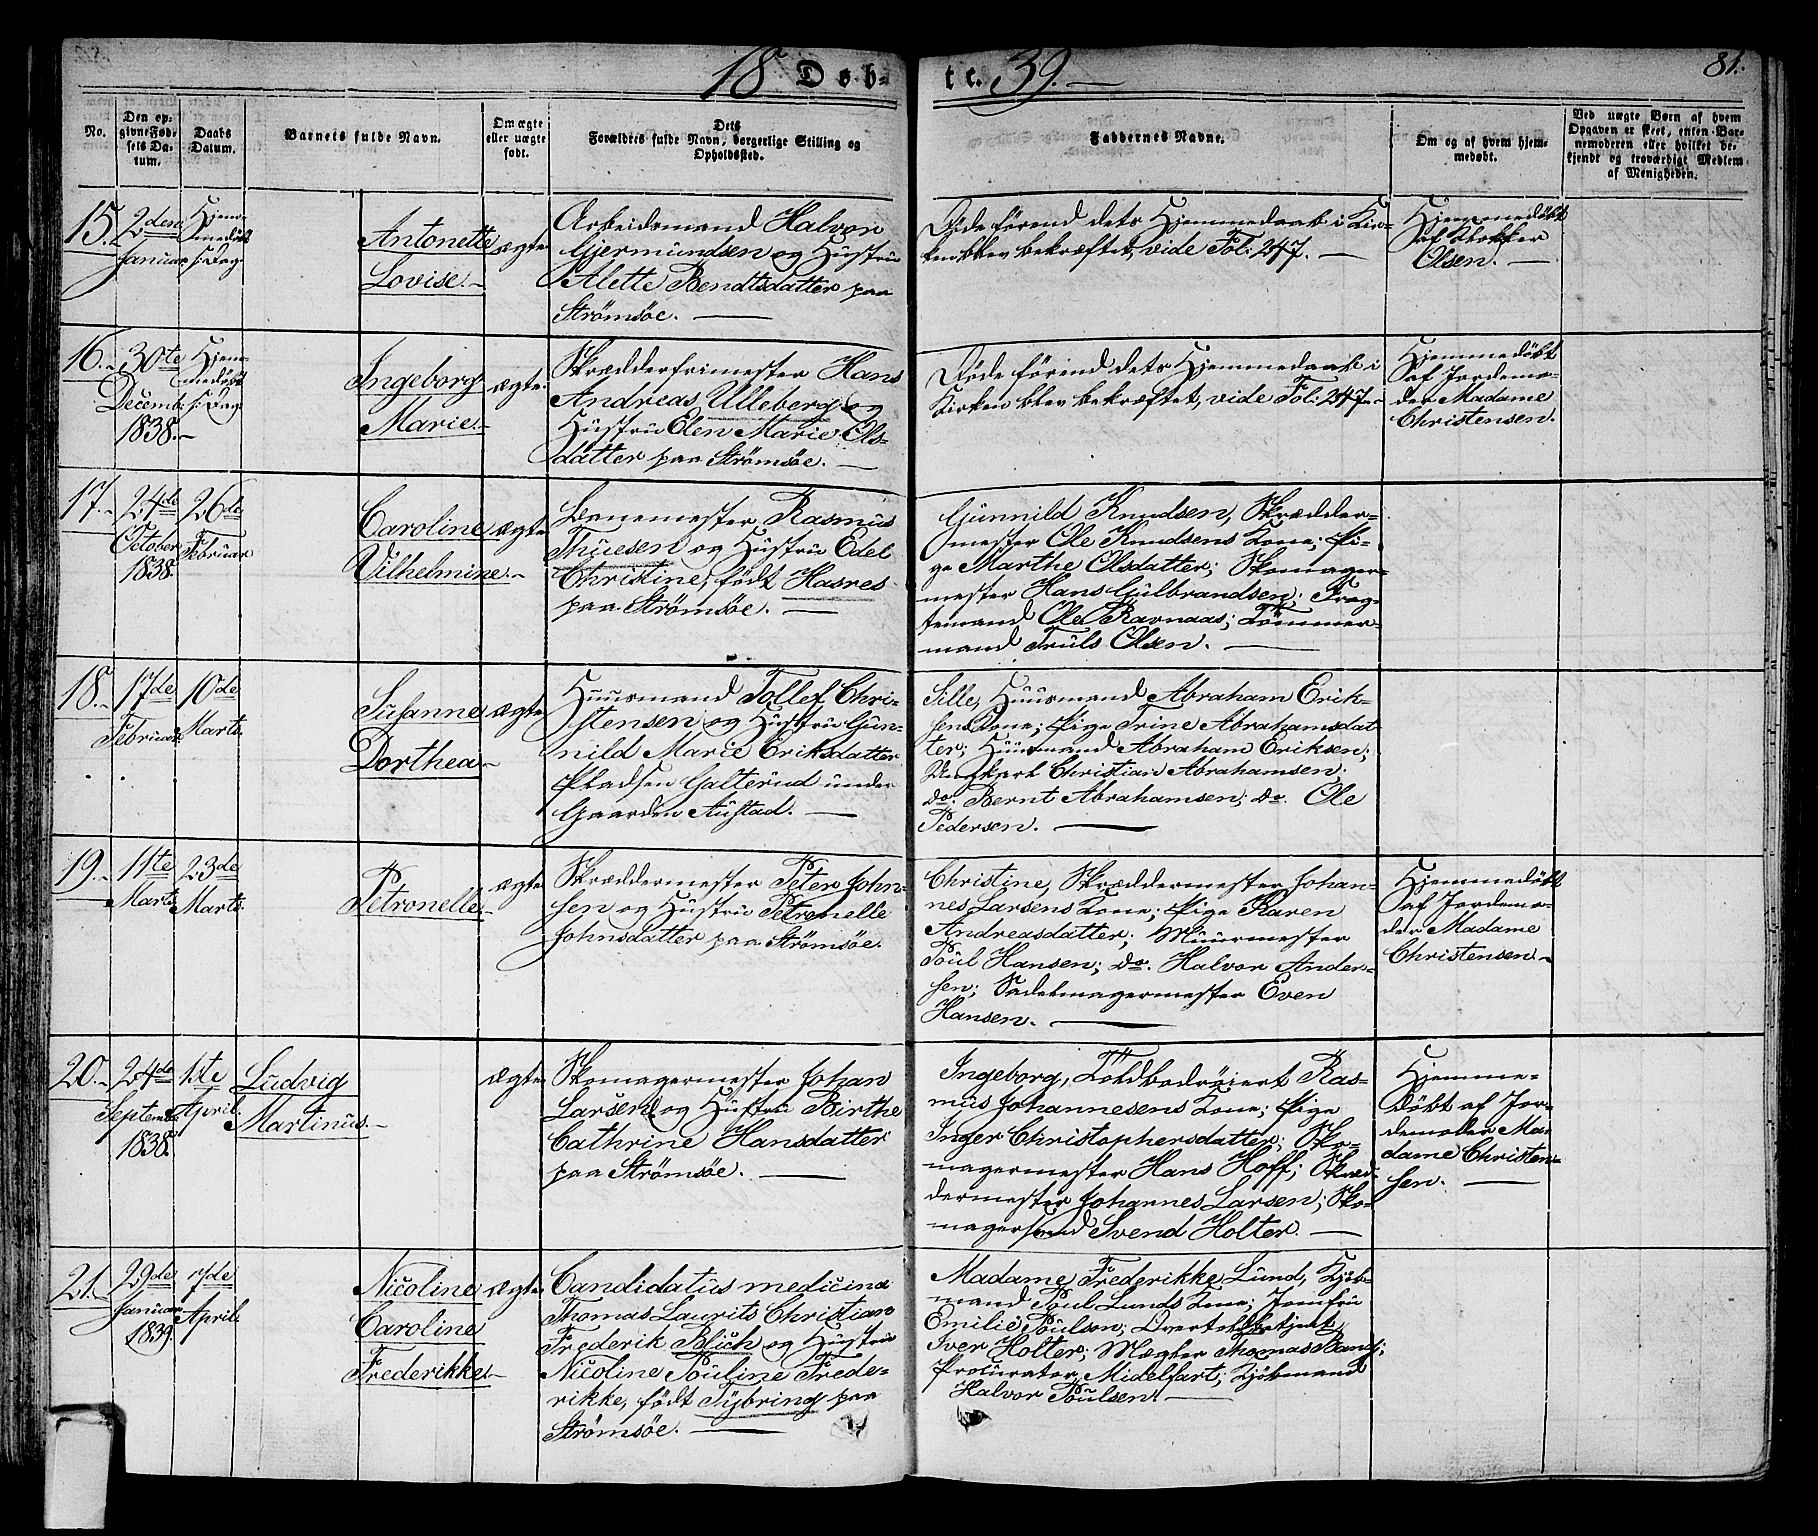 18 Döb-
te. 39.
81.
No.
Den op-
givne Föd-
sels Da-
tum.
Daabs
Datum.
Barnets fulde Navn.
Om ægte
eller uægte
født.
Dets
Forældres fulde Navn, borgerlige Stilling og
Opholdssted.
Faddernes Navne.
Om og af hvem hjem-
medøbt.
Ved uægte Børn af hvem
Opgaven er skeet, enten Bar-
nemoderen eller hvilket be-
kjendt og troværdigt Medlem
af Menigheden.
15.
2den
Januar
Hjem-
medöbt
s: Dag
Antonette
Lovise.
ægte
Arbeidsmand Halvor
Gjermundsen og Hustru
Alette Bendtsdatter paa
Strömsöe.
Döde förend dets Hjemmedaab i Kir-
ken blev bekræftet, vide Fol: 247.
Hjemmedöbt
af Klokker
Olsen.
16.
30te
Decemb:
1838.
Hjem-
medöbt
s: Dag
Ingeborg
Marie.
ægte
Skrædderfrimester Hans
Andreas Ulleberg og
Hustru Elen Marie Ols-
datter paa Strömsöe.
Döde förend dets Hjemmedaab i
Kirken blev bekræftet, vide Fol: 247.
Hjemmedöbt
af Jordemo-
der Madame
Christensen.
17.
24de
October
1838.
26de
Februar
Caroline
Vilhelmine.
ægte
Havnemester Rasmus
Thuesen og Hustru Edel
Christine, födt Hasnes
paa Strömsöe.
Gunnild Knudsen, Skrædder-
mester Ole Knudsens Kone; Pi-
ge Marthe Olsdatter; Skomager-
mester Hans Gulbrandsen; Frag-
temand Ole Ravnaas; Tömmer-
mand Truls Olsen.
18.
17de
Februar
10de
Marts
Susanne
Dorthea
ægte
Huusmand Tollef Chri-
stensen og Hustru Gun-
nild Marie Eriksdatter
Pladsen Galterud under
Gaarden Austad.
Sille, Huusmand Abraham Erik-
sens Kone; Pige Trine Abrahamsdat
ter; Huusmand Abraham Eriksen;
Ungkarl Christian Abrahamsen;
do. Bernt Abrahamsen; do. Ole
Pedersen.
19.
11te
Marts
23de
Marts
Petronelle.
ægte
Skræddermester Peter John-
sen og Hustru Petronelle
Johnsdatter paa Strömsöe.
Christine, Skræddermester Johan-
nes Larsens Kone; Pige Karen
Andreasdatter; Muurmester
Poul Hansen; do. Halvor Ander-
sen; Sadelmagermester Even
Hansen.
Hjemmedöbt
af Jordemo-
der Madame
Christensen
20.
24de
Septemb:
1838.
1ste
April.
Ludvig
Martinus.
ægte
Skomagermester Johan
Larsen og Hustru Birthe
Cathrine Hansdatter
paa Strömsöe.
Ingeborg, Toldbodröiert Ras-
mus Johannesens Kone; Pige
Inger Christophersdatter; Sko-
magermester Hans Hoff; Skræd-
dermester Johannes Larsen; Sko-
magersvend Svend Holter.
Hjemme-
döbt af Jor-
demoder Ma-
dame Christen-
sen.
21.
29de
Januar
1839.
7de
April
Nicoline
Caroline
Frederikke.
ægte
Candidatus medicina
Thomas Laurits Christian
Frederik Blich og Hustru
Nicoline Pouline Frede-
rikke, födt Tybring paa
Strömsöe.
Madame Frederikke Lund, Kjöb-
mand Poul Lunds Kone; Jomfru
Emilie Poulsen; Overtoldbetjent
Iver Holter; Mægler Thomas Bang;
Procurator Midelfart; Kjöbmand
Halvor Poulsen.